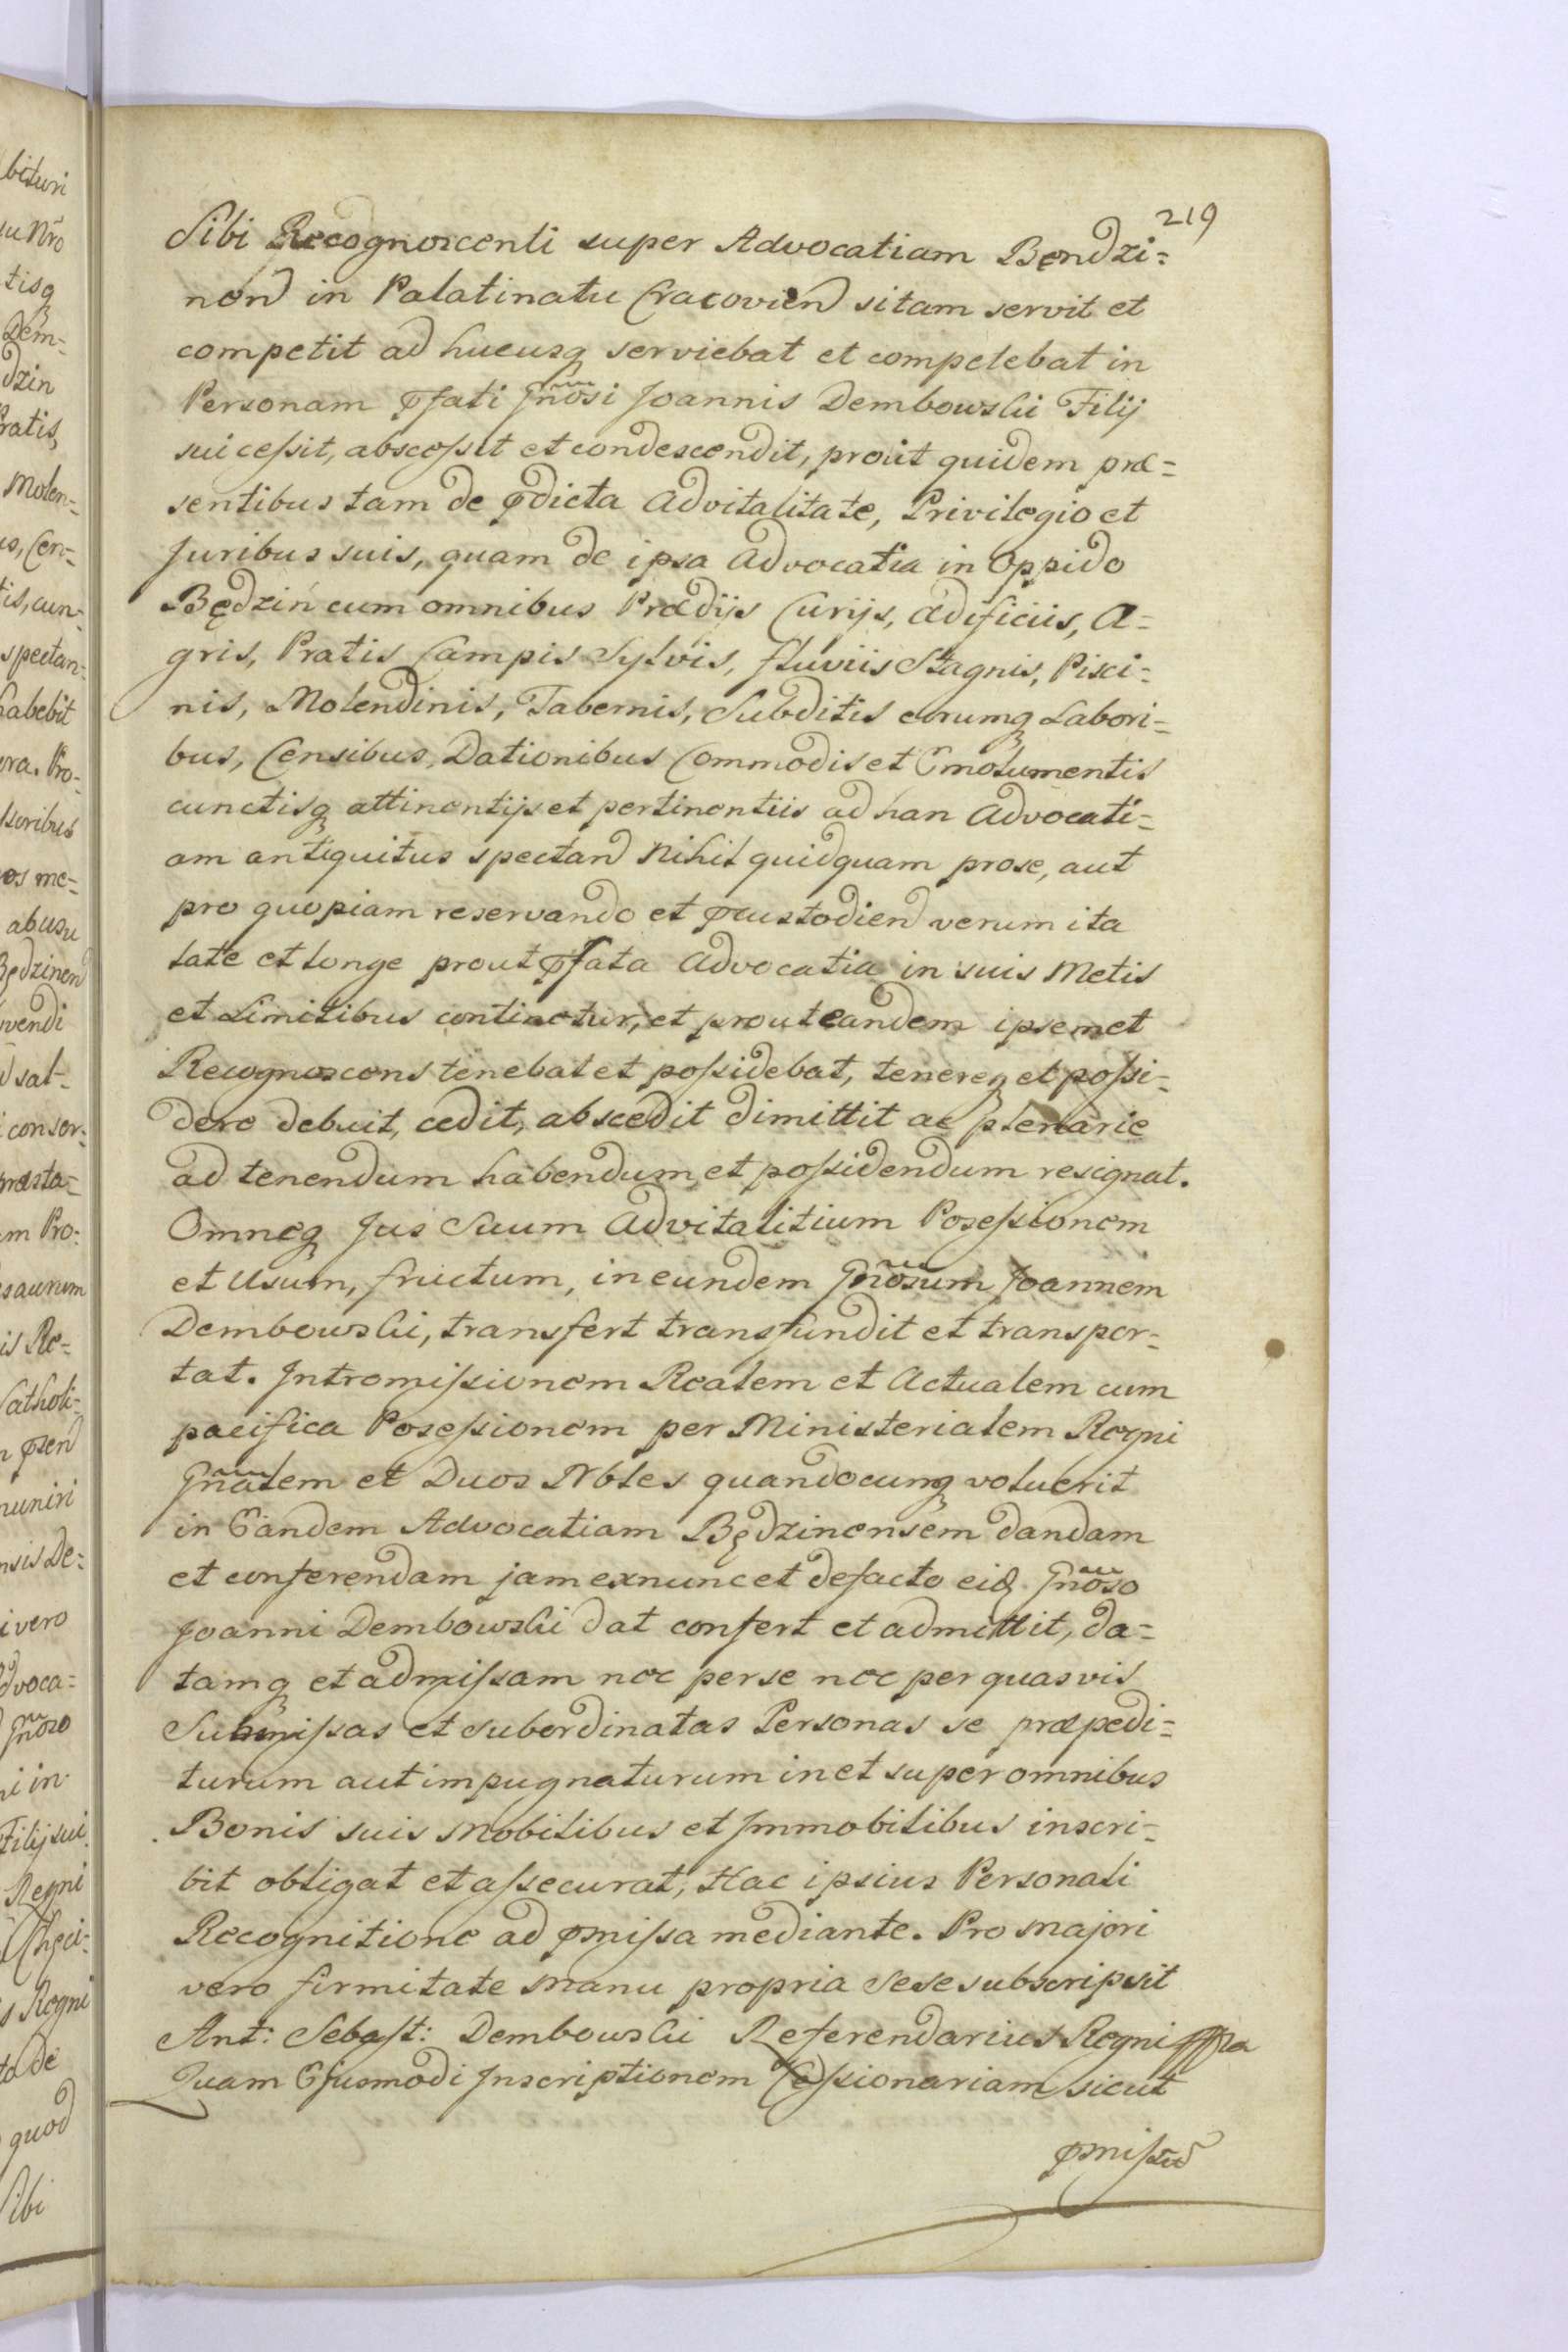 219
Sibi Recognoscenti super Advocatiam Bendzi=
nen in Palatinatu Cracovien sitam servit et
competit ad hucusq serviebat et competebat in
Personam pfati Gnosi Joannis Dembowski Filij
sui cessit, abscessit et condescendit, prout quidem præ=
sentibus tam de pdicta Advitalitate, Privilegio et
Juribus suis, quam de ipsa Advocatia in Oppido
Będzin cum omnibus Prædijs Curijs, Ædificiis, A=
gris, Pratis Campis Sylvis, fluviis Stagnis, Pisci=
nis, Molendinis, Tabernis, Subditis eorumq Labori=
bus, Censibus, Dationibus Commodis et Emolumentis
cunctisq attinentijs et pertinentiis ad han Advocati=
am antiquitus spectan Nihil quidquam prose, aut
pro quopiam reservando et pcustodien verum ita
late et longe prout pfata Advocatia in suis Metis
et Limitibus continetur, et prout eandem ipsemet
Recognoscens tenebat et possidebat, tenereq et possi=
dere debuit, cedit, abscedit dimittit ac plenarie
ad tenendum habendum et possidendum resignat.
Omneq Jus Suum Advitalitium Posessionem
et Usum, fructum, in eundem Gnosum Joannem
Dembowski, transfert transfundit et transpor=
tat. Intromissionem Realem et Actualem cum
pacifica Posessionem per Ministerialem Regni
Gnalem et Duos Nbles quandocunq voluerit
in Eandem Advocatiam Będzinensem dandam
et conferendam jam exnunc et defacto eid. Gnoso
Joanni Dembowski dat confert et admittit, da=
tamq et admissam nec per se nec per quasvis
Submissas et subordinatas Personas se præpedi=
turum aut impugnaturum in et super omnibus
Bonis suis Mobilibus et Immobilibus inscri=
bit obligat et assecurat, Hac ipsius Personali
Recognitione ad pmissa mediante. Pro Majori
vero firmitate Manu propria sese subscripsit
Ant: Sebast: Dembowski Referendarius Regni
Quam Ejusmodi Inscriptionem Cessionariam sicut